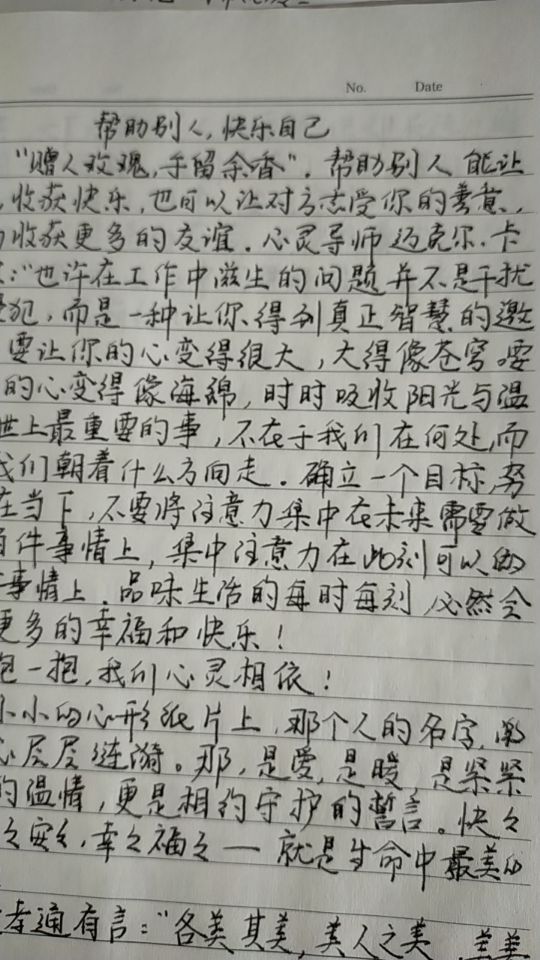 No. Date
帮助别人,快乐自己
"赠人玫瑰,手留余香". 帮助别人能让
收获快乐,也可以让对方感受你的善意,
收获更多的友谊. 心灵导师迈克尔.卡
:"也许在工作中滋生的问题并不是干扰
犯,而是一种让你得到真正智慧的邀
要让你的心变得很大,大得像苍穹.要
的心变得像海绵,时时吸收阳光与温
世上最重要的事,不在于我们在何处,而
我们朝着什么方向走.确立一个目标,努
在当下,不要将注意力集中在未来需要做
件事情上,集中注意力在此刻可以的
事情上.品味生活的每时每刻,必然会
更多的幸福和快乐!
抱一抱,我们心灵相依!
小小的心形纸片上,那个人的名字,
心层层涟漪。那,是爱,是暖,是紧紧
的温情,更是相约守护的誓言。快々
々安々,幸々福々—就是生命中最美的
孝通有言:"各美其美,美人之美,美美